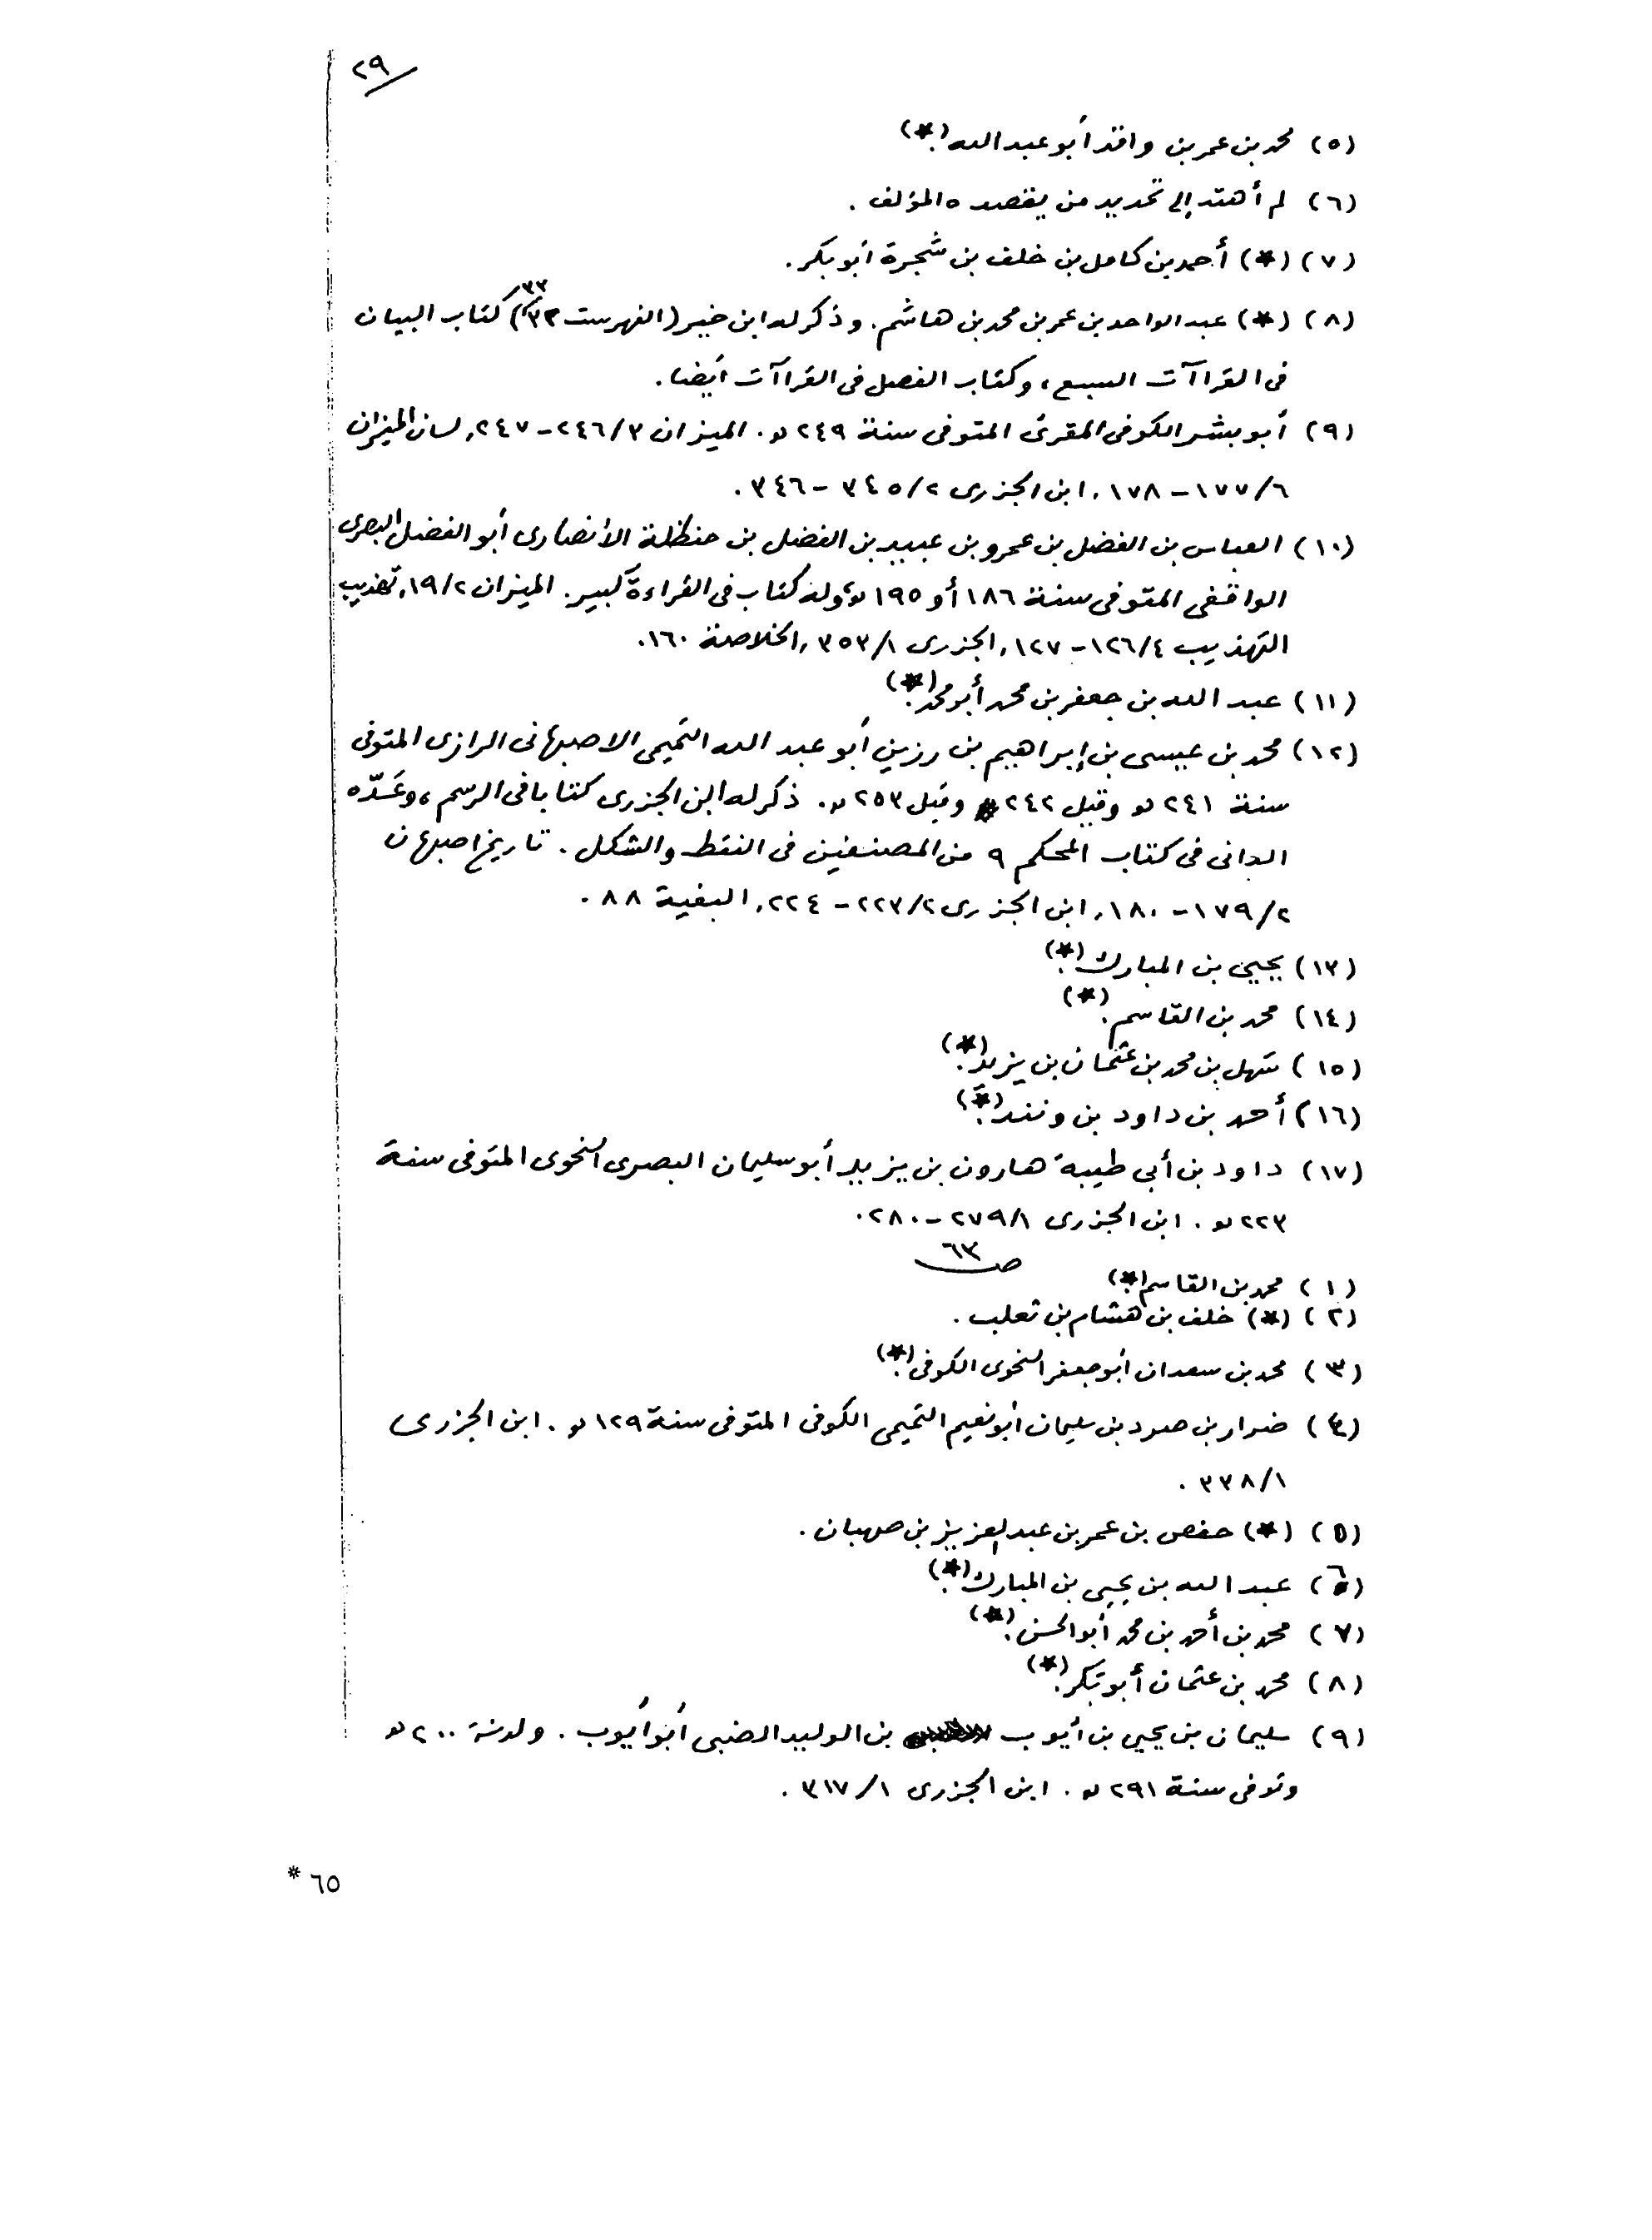 ٢٩
(٥) محمد بن عمر بن واقد أبو عبد الله (*).
(٦) لم أهتد إلى تحديد من يقصده المؤلف .
(٧) (*) أحمد بن كامل بن خلف بن شجرة أبو بكر .
(٨) (*) عبد الواحد بن عمر بن محمد بن هاشم . وذكر له ابن خير (الفهرست ٣٣) كتاب البيان
فى القراآت السبع ، وكتاب الفصل فى القراآت أيضا .
(٩) أبو بشر الكوفى المقرئ المتوفى سنة ٢٤٩ ه . الميزان ٣/٢٤٦ - ٢٤٧ , لسان الميزان
٦/١٧٧ - ١٧٨ , ابن الجزرى ٢/٣٤٥ - ٣٤٦ .
(١٠) العباس بن الفضل بن عمرو بن عبيد بن الفضل بن حنظلة الأنصارى أبو الفضل البصرى
الواقفى المتوفى سنة ١٨٦ أو ١٩٥ ه ، وله كتاب فى القراءة كبير . الميزان ٢/١٩ , تهذيب
التهذيب ٤/١٢٦ - ١٢٧ , الجزرى ١/٣٥٣ , الخلاصة ١٦٠ .
(١١) عبد الله بن جعفر بن محمد أبو محمد (*).
(١٢) محمد بن عيسى بن إبراهيم بن رزين أبو عبد الله التميمى الاصبهانى الرازى المتوفى
سنة ٢٤١ ه وقيل ٢٤٢ وقيل ٢٥٣ ه . ذكر له ابن الجزرى كتابا فى الرسم ، وعَدّه
الدانى فى كتاب المحكم ٩ من المصنفين فى النقط والشكل . تاريخ اصبهان
٢/١٧٩ - ١٨٠ , ابن الجزرى ٢/٢٢٣ - ٢٢٤ , البغية ٨٨ .
(١٣) يحيى بن المبارك (*).
(١٤) محمد بن القاسم (*).
(١٥) سهل بن محمد بن عثمان بن يزيد (*).
(١٦) أحمد بن داود بن ونند (*).
(١٧) داود بن أبى طيبة هارون بن يزيد أبو سليمان البصرى النحوى المتوفى سنة
٢٢٣ ه . ابن الجزرى ١/٢٧٩ - ٢٨٠ .
ص ٦٣
(١) محمد بن القاسم (*).
(٢) (*) خلف بن هشام بن ثعلب .
(٣) محمد بن سعدان أبو جعفر النحوى الكوفى (*).
(٤) ضرار بن صرد بن سليمان أبو نعيم التميمى الكوفى المتوفى سنة ١٢٩ ه . ابن الجزرى
١/٣٣٨ .
(٥) (*) حفص بن عمر بن عبد العزيز بن صهبان .
(٦) عبد الله بن يحيى بن المبارك (*).
(٧) محمد بن أحمد بن محمد أبو الحسن (*).
(٨) محمد بن عثمان أبو بكر (*).
(٩) سليمان بن يحيى بن أيوب بن الوليد الضبى أبو أيوب . ولد سنة ٢٠٠ ه
وتوفى سنة ٢٩١ ه . ابن الجزرى ١/٣١٧ .
٦٥ *